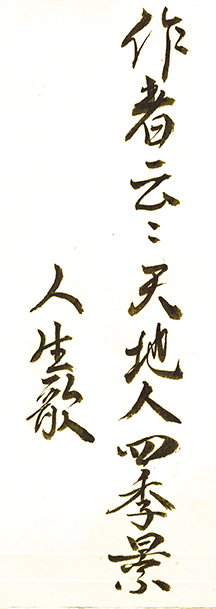 作者云：天地人四季景
人生歌